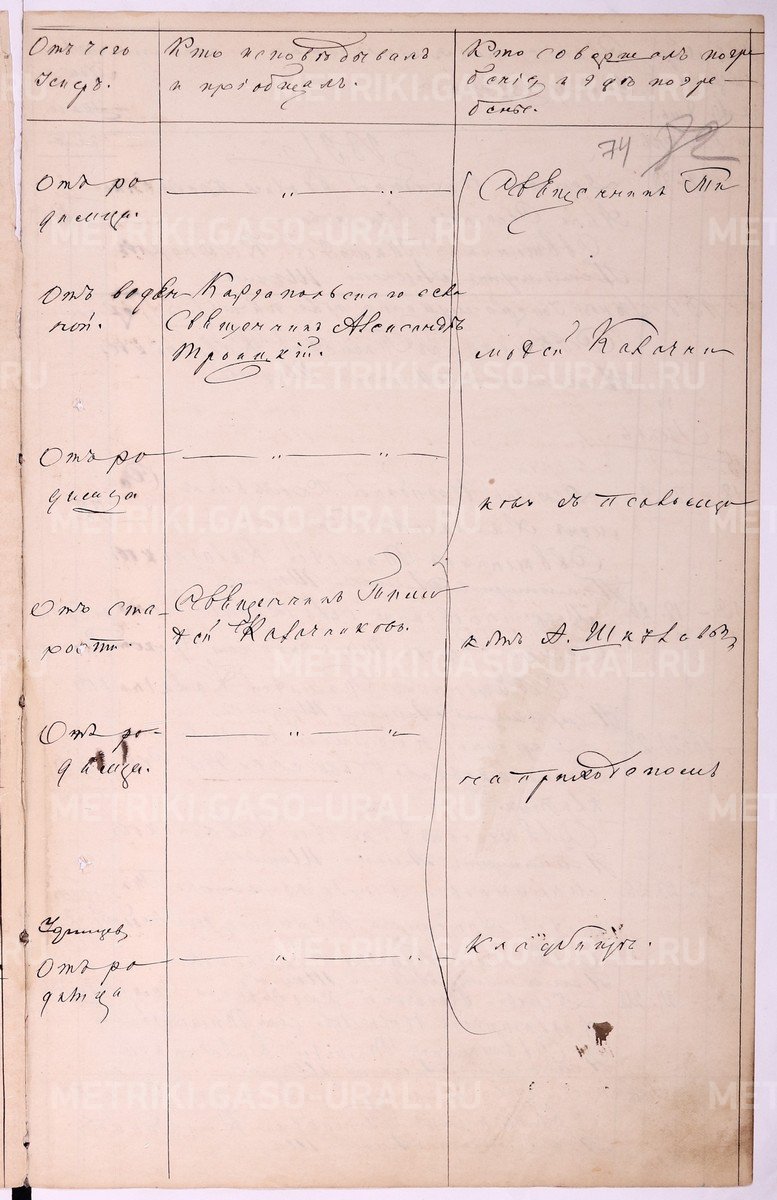 Отъ чего
умеръ.
Кто исповѣдывалъ
и пріобщалъ.
Кто совершалъ погре
бенія и гдѣ погре-
бены.
74 82
Отъ ро
димца.
Священникъ Ти
Отъ водян
ной.
Каргапольскаго села
Священникъ Александръ
Троицкій.
мофей Калачни
Отъ ро
димца
ковъ съ псаломщи
Отъ ста-
рости
Священникъ Тимо
фей Калачниковъ.
комъ А.
Отъ ро-
димца.
на приходскомъ
Отъ ро
димца
кладбищѣ.
METRIKI.GASO-URAL.RU